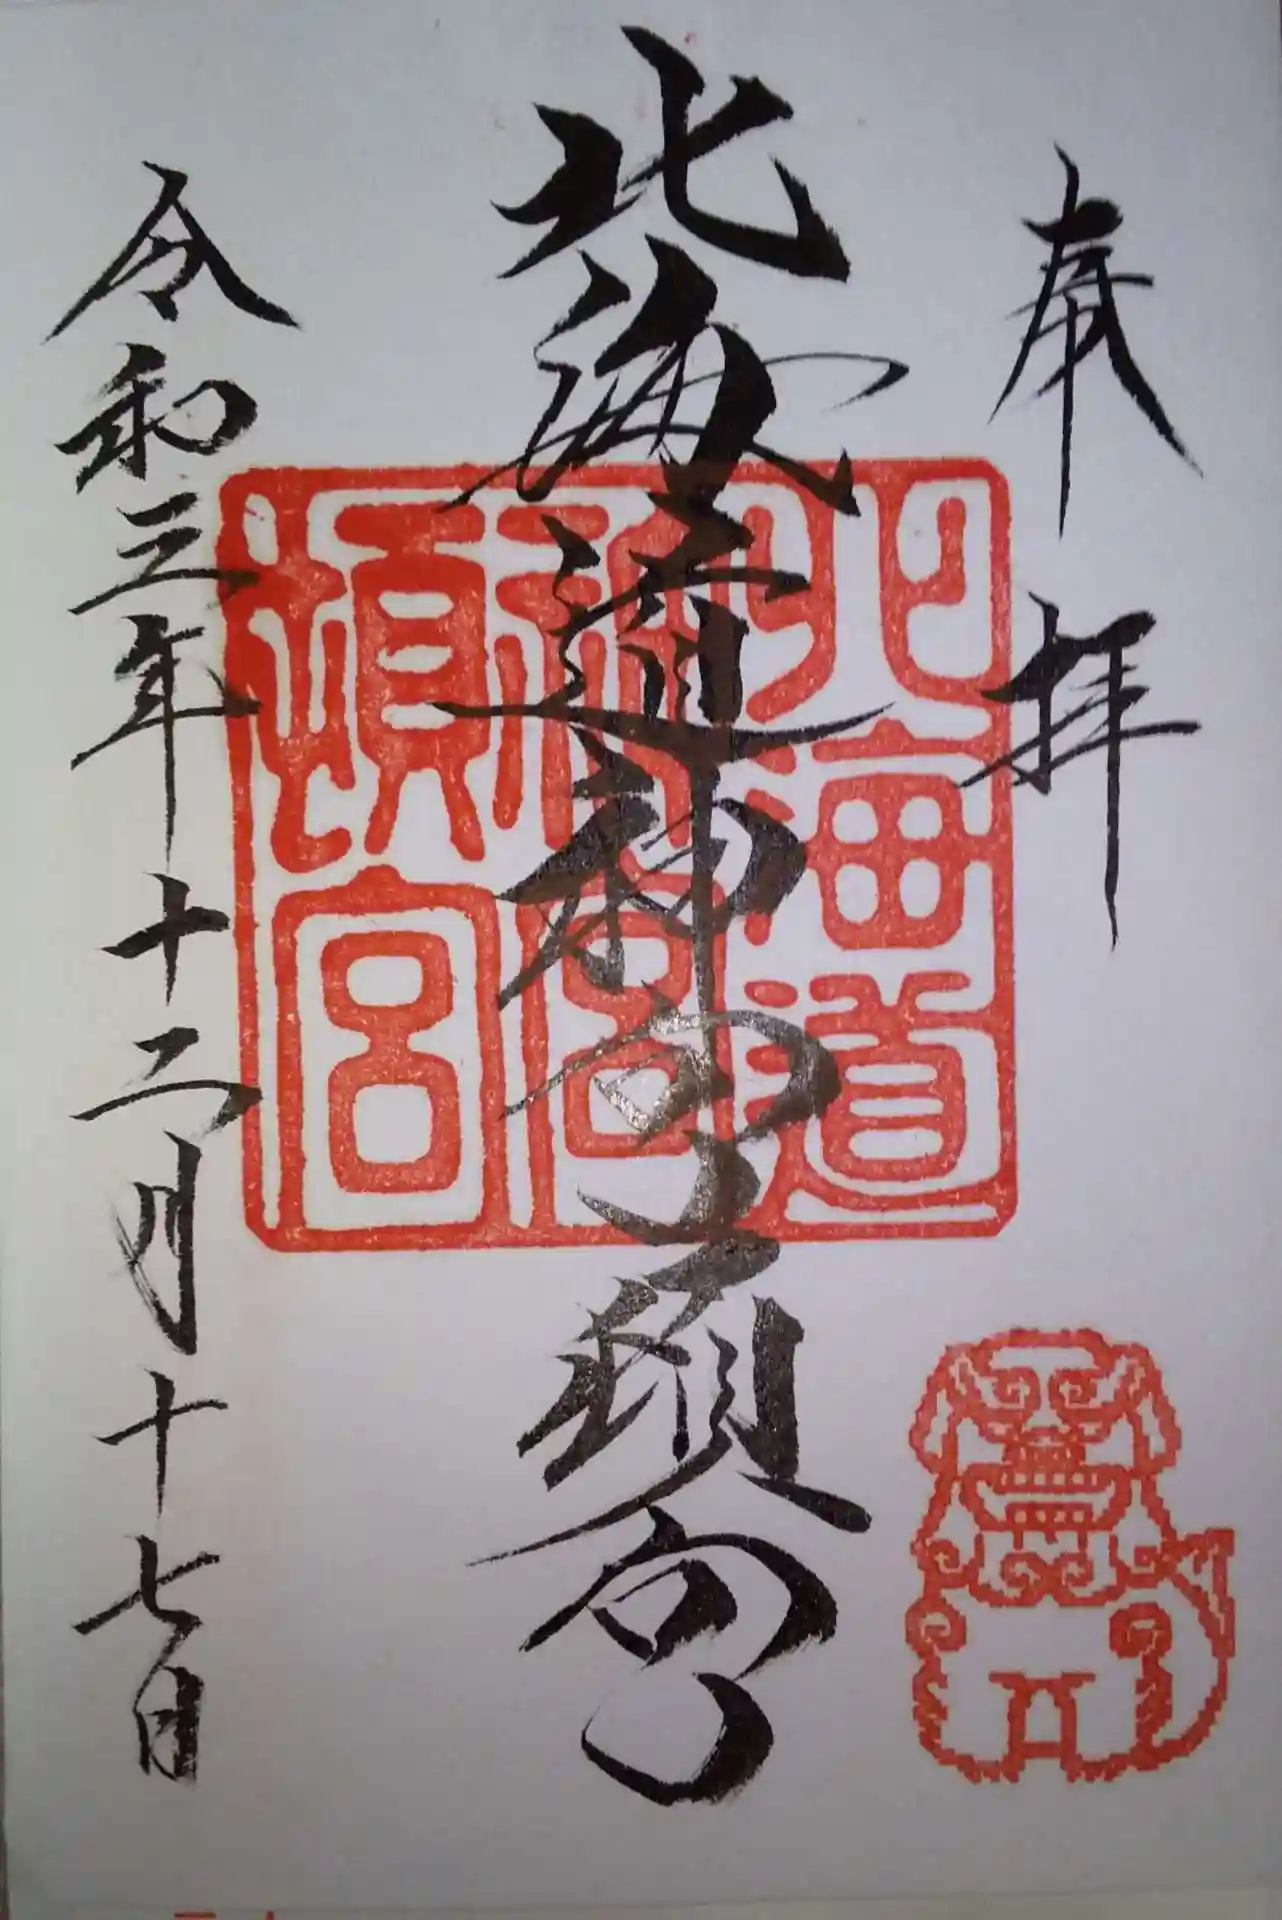 奉拝
北海道神宮頓宮
北海道
神宮
頓宮
令和三年十二月十七日